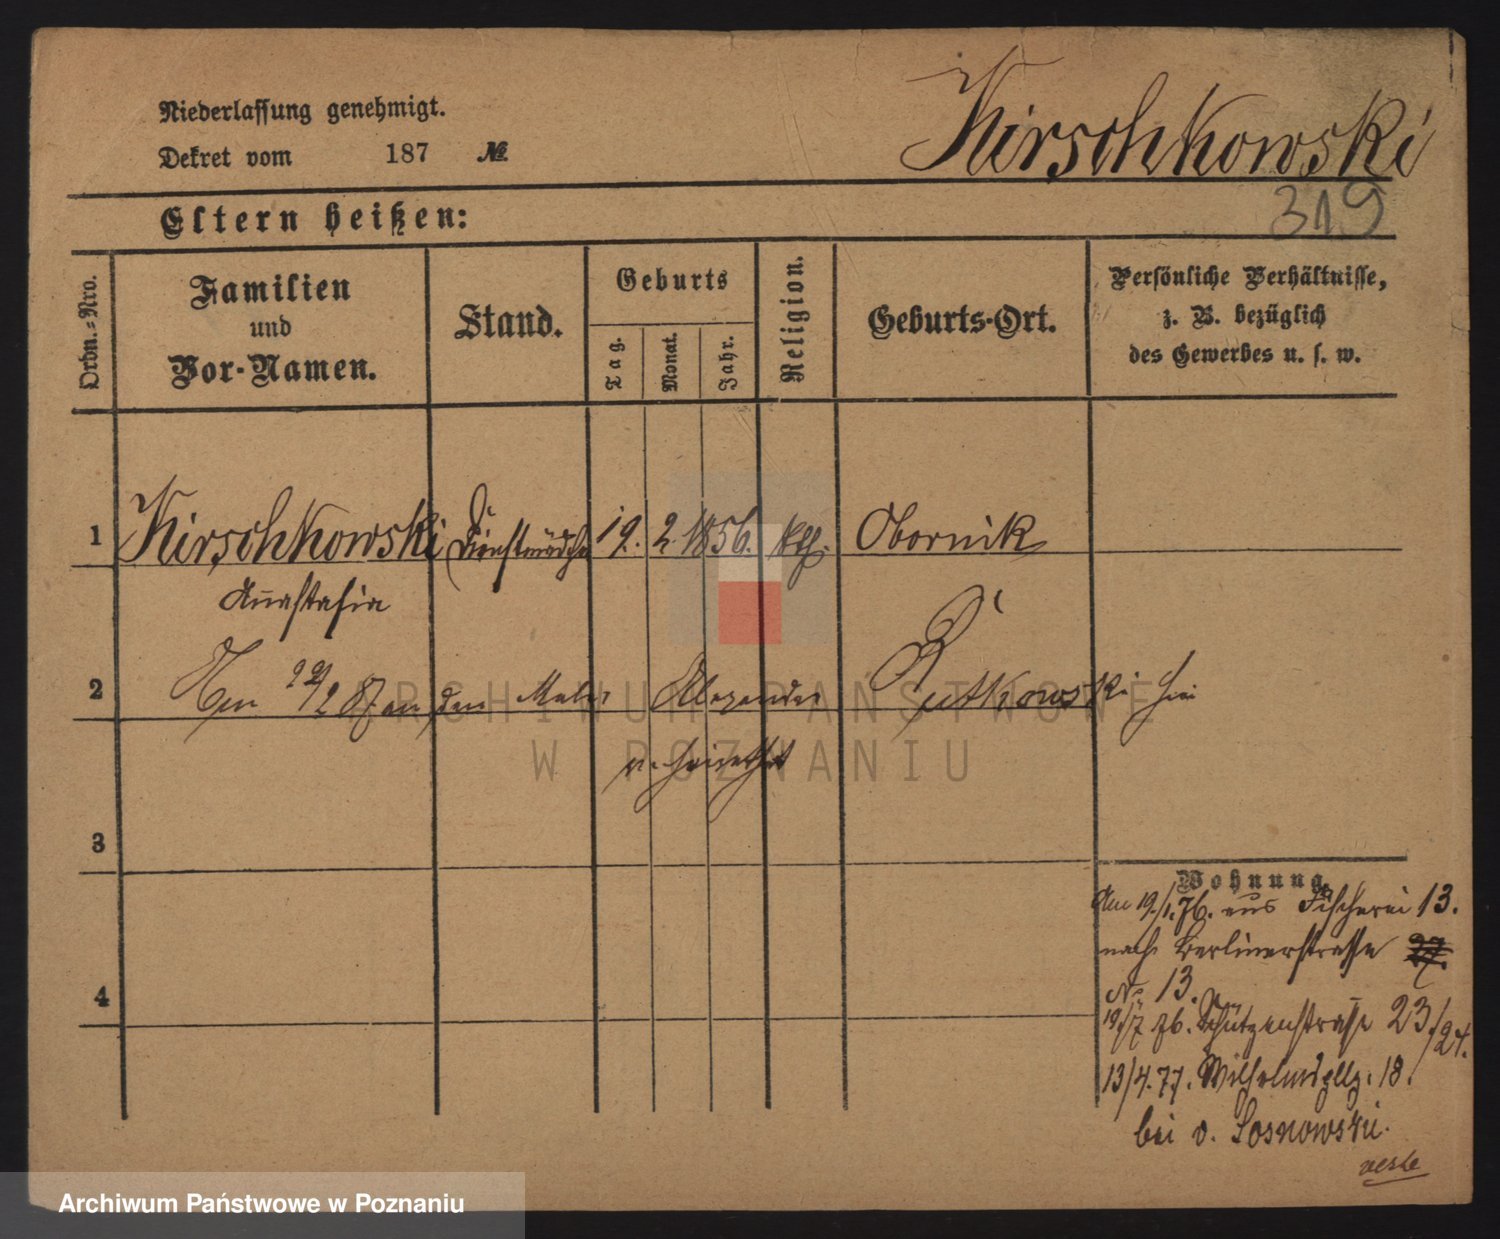 Niederlassung genehmigt.
Dekret vom 187 №
Kirschkowski
319
Eltern heißen:
Ordn.-Nro.
Familien
und
Vor-Namen.
Stand.
Geburts
Tag.
Monat.
Jahr.
Religion.
Geburts-Ort.
Persönliche Verhältnisse,
z. B. bezüglich
des Gewerbes u. s. w.
1 Kirschkowski Dienstmädchen 19. 2. 1856. kth. Obornik
Anastasia
2 Am 22/2 87 an den Maler Alexander Rutkowski hier
verheirathet
3
Wohnung
Am 19./1. 76. aus Fischerei 13.
nach Berlinerstrasse 27.
No 13.
19/7 76. Schützenstrasse 23/24.
13/4. 77. Wilhelmsplz. 18.
bei v. Sosnowski.
4
ARCHIWUM PAŃSTWOWE
W POZNANIU
Archiwum Państwowe w Poznaniu